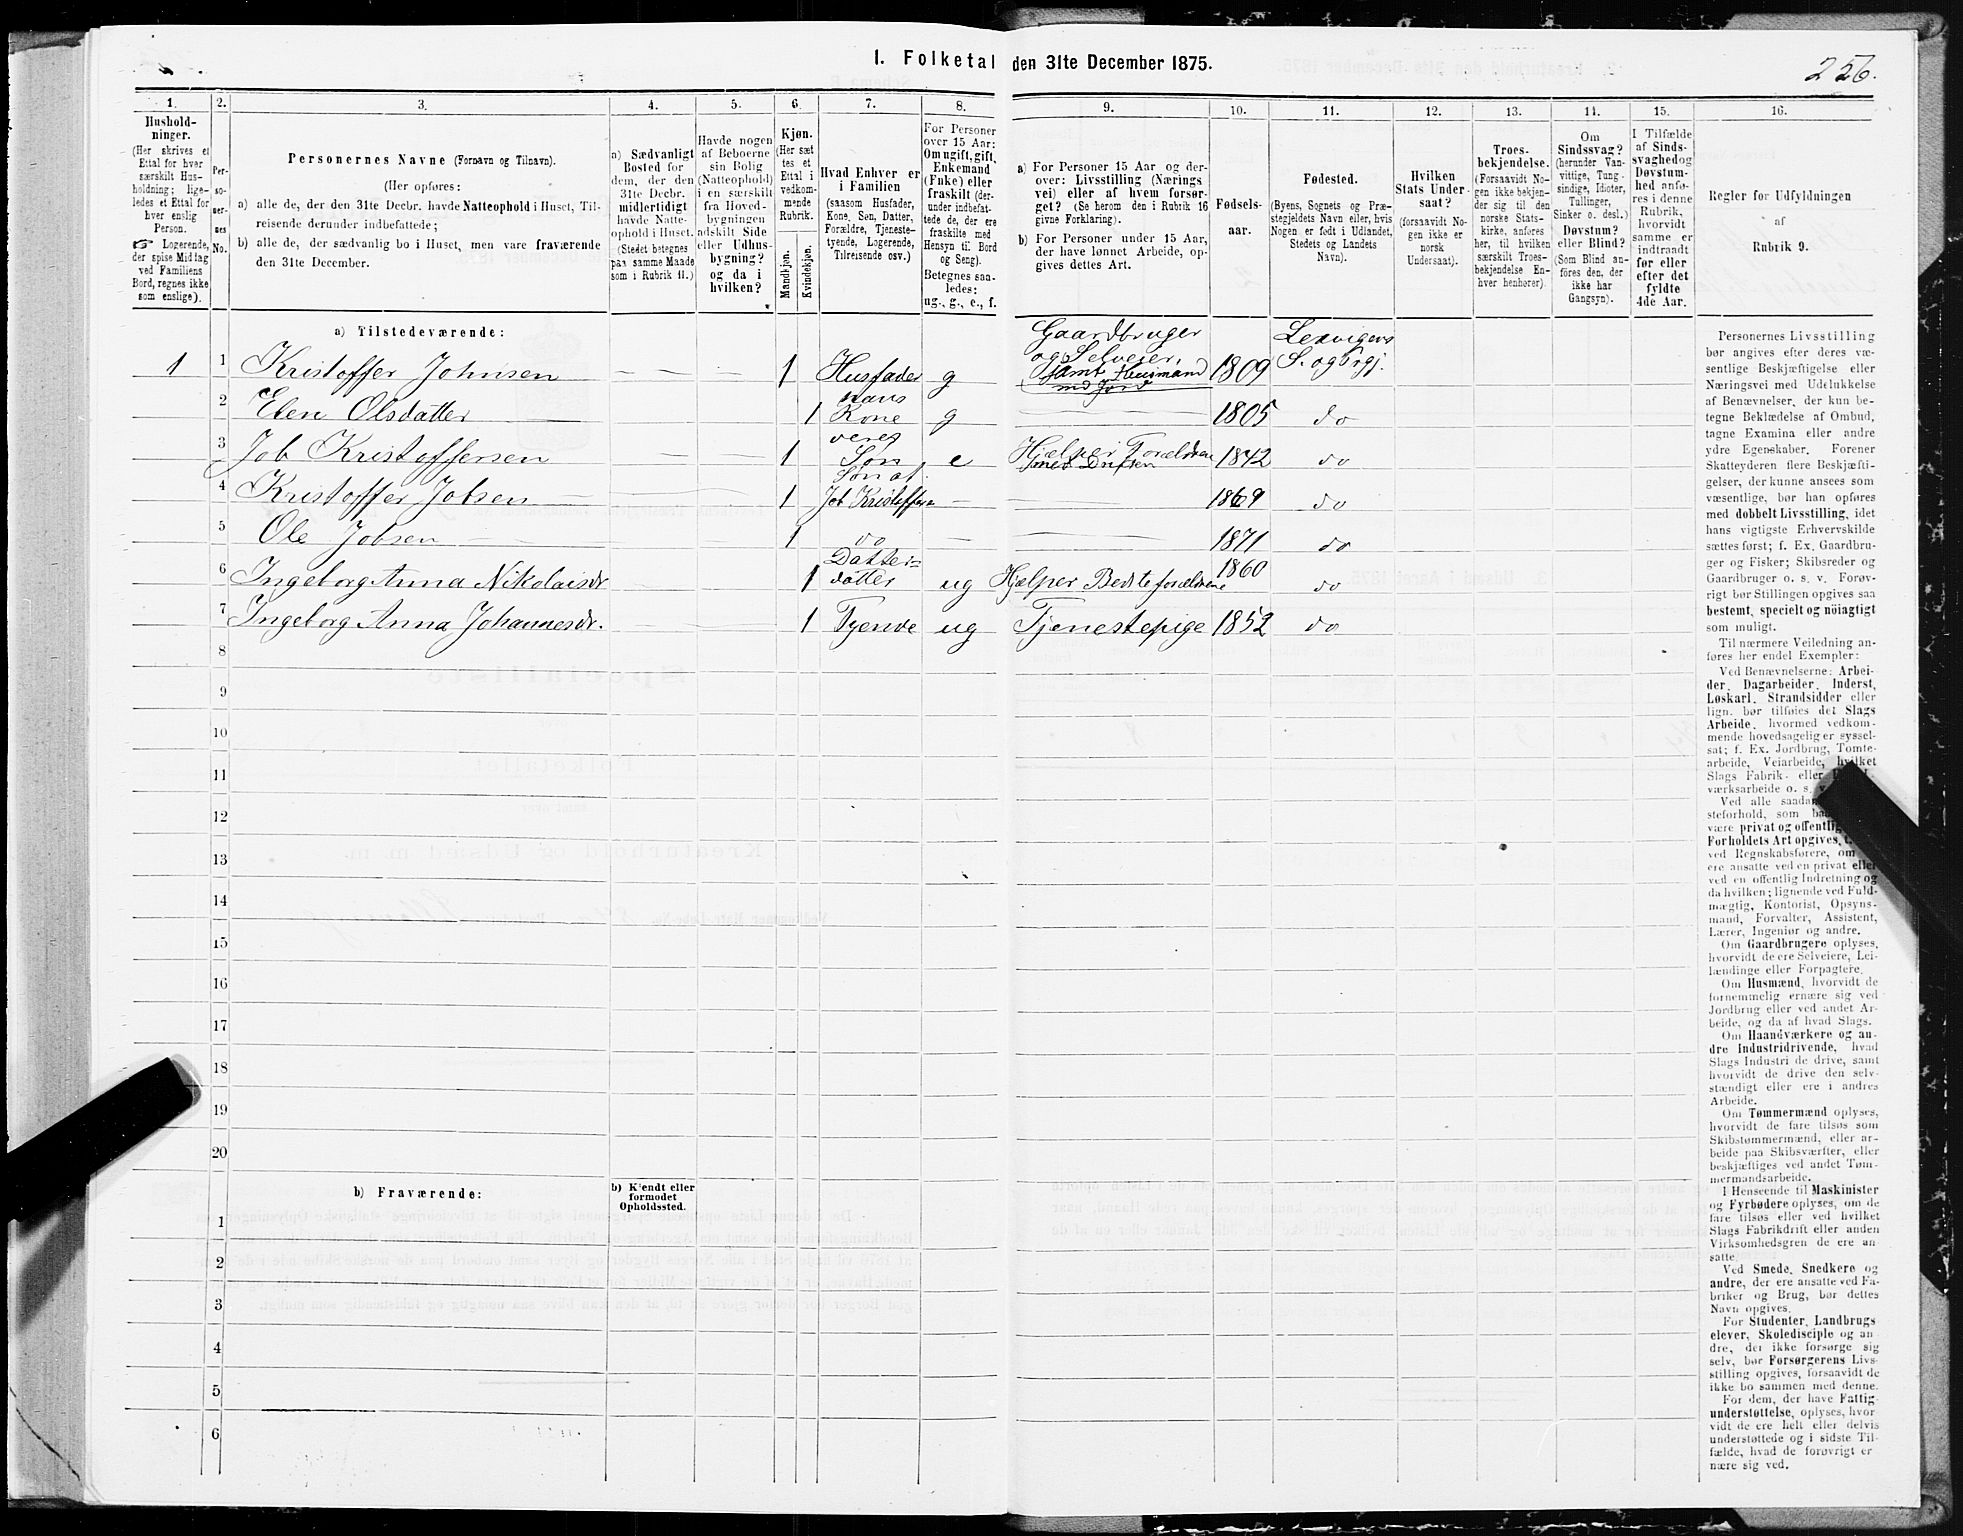 1. Folketal den 31te December 1875.
256.
1.
2.
3.
4.
5.
6.
7.
8.
9.
10.
11.
12.
13.
14.
15.
16.
Hushold-
ninger.
(Her skrives et
Ettal for hver
særskilt Hus-
holdning; lige-
ledes et Ettal for
hver enslig
Person.
☞ Logerende,
der spise Middag
ved Familiens
Bord, regnes ikke
som enslige).
Per-
so-
ner-
nes
No.
Personernes Navne (Fornavn og Tilnavn).
(Her opføres:
a) alle de, der den 31te Decbr. havde Natteophold i Huset, Til-
reisende derunder indbefattede;
b) alle de, der sædvanlig bo i Huset, men vare fraværende
den 31te December.
a) Sædvanligt
Bosted for
dem, der den
31te Decbr.
midlertidigt
havde Natte-
ophold i Huset.
(Stedet betegnes
paa samme Maade
som i Rubrik 11.)
Havde nogen
af Beboerne
sin Bolig
(Natteophold)
i en særskilt
fra Hoved-
bygningen
adskilt Side
eller Udhus-
bygning?
og da i
hvilken?
Kjøn.
(Her sæt
tes et
Ettal i
vedkom-
mende
Rubrik.
Mandkjøn.
Kvindekjøn.
Hvad Enhver er
i Familien
(saasom Husfader,
Kone, Søn, Datter,
Forældre, Tjeneste-
tyende, Logerende,
Tilreisende osv.)
For Personer
over 15 Aar:
Om ugift, gift,
Enkemand
(Enke) eller
fraskilt (der-
under indbefat-
tede de, der ere
fraskilte med
Hensyn til Bord
og Seng).
Betegnes saa-
ledes:
ug., g., e., f.
a) For Personer 15 Aar og der-
over: Livsstilling (Nærings
vei) eller af hvem forsør-
get? (Se herom den i Rubrik 16
givne Forklaring).
b) For Personer under 15 Aar,
der have lønnet Arbeide, op-
gives dettes Art.
Fødsels-
aar.
Fødested.
(Byens, Sognets og Præ-
stegjeldets Navn eller, hvis
Nogen er født i Udlandet,
Stedets og Landets
Navn).
Hvilken
Stats Under-
saat?
(forsaavidt No-
gen ikke er
norsk
Undersaat).
Troes-
bekjendelse.
(Forsaavidt No-
gen ikke bekjen-
der sig til den
norske Stats-
kirke, anføres
her, til hvilken
særskilt Troes-
bekjendelse En-
hver henhører).
Om
Sindssvag?
(herunder Van-
vittige, Tung-
sindige, Idioter,
Tullinger,
Sinker o. desl.)
Døvstum?
eller Blind?
(Som Blind an-
føres den, der
ikke har
Gangsyn).
I Tilfælde
af Sinds-
svaghed og
Døvstum-
hed anfø-
res i denne
Rubrik,
hvorvidt
samme er
indtraadt
før eller
efter det
fyldte
4de Aar.
Regler for Udfyldningen
af
Rubrik 9.
a) Tilstedeværende:
1 1 Kristoffer Johnsen — — 1 Husfader g Gaardbruger og Selveier, samt Huusmand med Jord 1809 Lexvigens S. og Prgj.
2 Elen Olsdatter 1 hans Kone g — 1805 do
3 Job Kristoffersen — — 1 deres Søn e Hjælper Forældrene med Driften 1842 do
4 Kristoffer Jobsen — — — 1 Søn af Job Kristoffers. — — 1869 do
5 Ole Jobsen — — — 1 do — — 1871 do
6 Ingeborg Anna Nikolaisdr — — 1 Datter-datter ug Hjælper Bedsteforældrene 1860 do
7 Ingeborg Anna Johannesdr. — — 1 Tyende ug Tjenestepige 1852 do
8
9
10
11
12
13
14
15
16
17
18
19
20
b) Fraværende:
b) Kjendt eller
formodet
Opholdssted.
1
2
3
4
5
6
Personernes Livsstilling
bør angives efter deres væ-
sentlige Beskjæftigelse eller
Næringsvei med Udelukkelse
af Benævnelser, der kun be-
tegne Beklædelse af Ombud,
tagne Examina eller andre
ydre Egenskaber. Forener
Skatteyderen flere Beskjæfti-
gelser, der kunne ansees som
væsentlige, bør han opføres
med dobbelt Livsstilling, idet
hans vigtigste Erhvervskilde
sættes først; f. Ex. Gaardbru-
ger og Fisker; Skibsreder og
Gaardbruger o. s. v. Forøv-
rigt bør Stillingen opgives saa
bestemt, specielt og nöiagtigt
som muligt.
Til nærmere Veiledning an-
føres her endel Exempler:
Ved Benævnelserne: Arbei-
der, Dagarbeider, Inderst,
Løskarl, Strandsidder eller
lign. bør tilføies det Slags
Arbeide, hvormed vedkom-
mende hovedsagelig er syssel-
sat; f. Ex. Jordbrug, Tomte-
arbeide, Veiarbeide, hvilket
Slags Fabrik- eller
værksarbeide o. s. v.
Ved alle saadan
steforhold, som
være privat og offentlig
Forholdets Art opgives,
ved Regnskabsførere, om
ere ansatte ved en privat eller
ved en offentlig Indretning og
da hvilken; lignende ved Fuld-
mægtig, Kontorist, Opsyns-
mand, Forvalter, Assistent,
Lærer, Ingeniør og andre.
Om Gaardbrugere oplyses,
hvorvidt de ere Selveiere, Lei-
lændinge eller Forpagtere.
Om Husmænd, hvorvidt de
fornemmelig ernære sig ved
Jordbrug eller ved andet Ar-
beide, og da af hvad Slags.
Om Haandværkere og an-
dre Industridrivende, hvad
Slags Industri de drive, samt
hvorvidt de drive den selv-
stændigt eller ere i andres
Arbeide.
Om Tømmermænd oplyses,
hvorvidt de fare tilsøs som
Skibstømmermænd, eller ar-
beide paa Skibsværfter, eller
beskjæftiges ved andet Tøm-
mermandsarbeide.
I Henseende til Maskinister
og Fyrbødere oplyses, om de
fare tilsøs eller ved hvilket
Slags Fabrikdrift eller anden
Virksomhedsgren de ere an
satte.
Ved Smede, Snedkere og
andre, der ere ansatte ved Fa-
briker og Brug, bør dettes
Navn opgives.
For Studenter, Landbrugs
elever, Skoledisciple og an
dre, der ikke forsørge sig
selv, bør Forsørgerens Livs-
stilling opgives, forsaavidt de
ikke bo sammen med denne.
For dem, der have Fattig-
understøttelse, oplyses, hvor-
vidt de ere helt eller delvis
understøttede og i sidste Til-
fælde, hvad de forøvrigt er
nære sig ved.